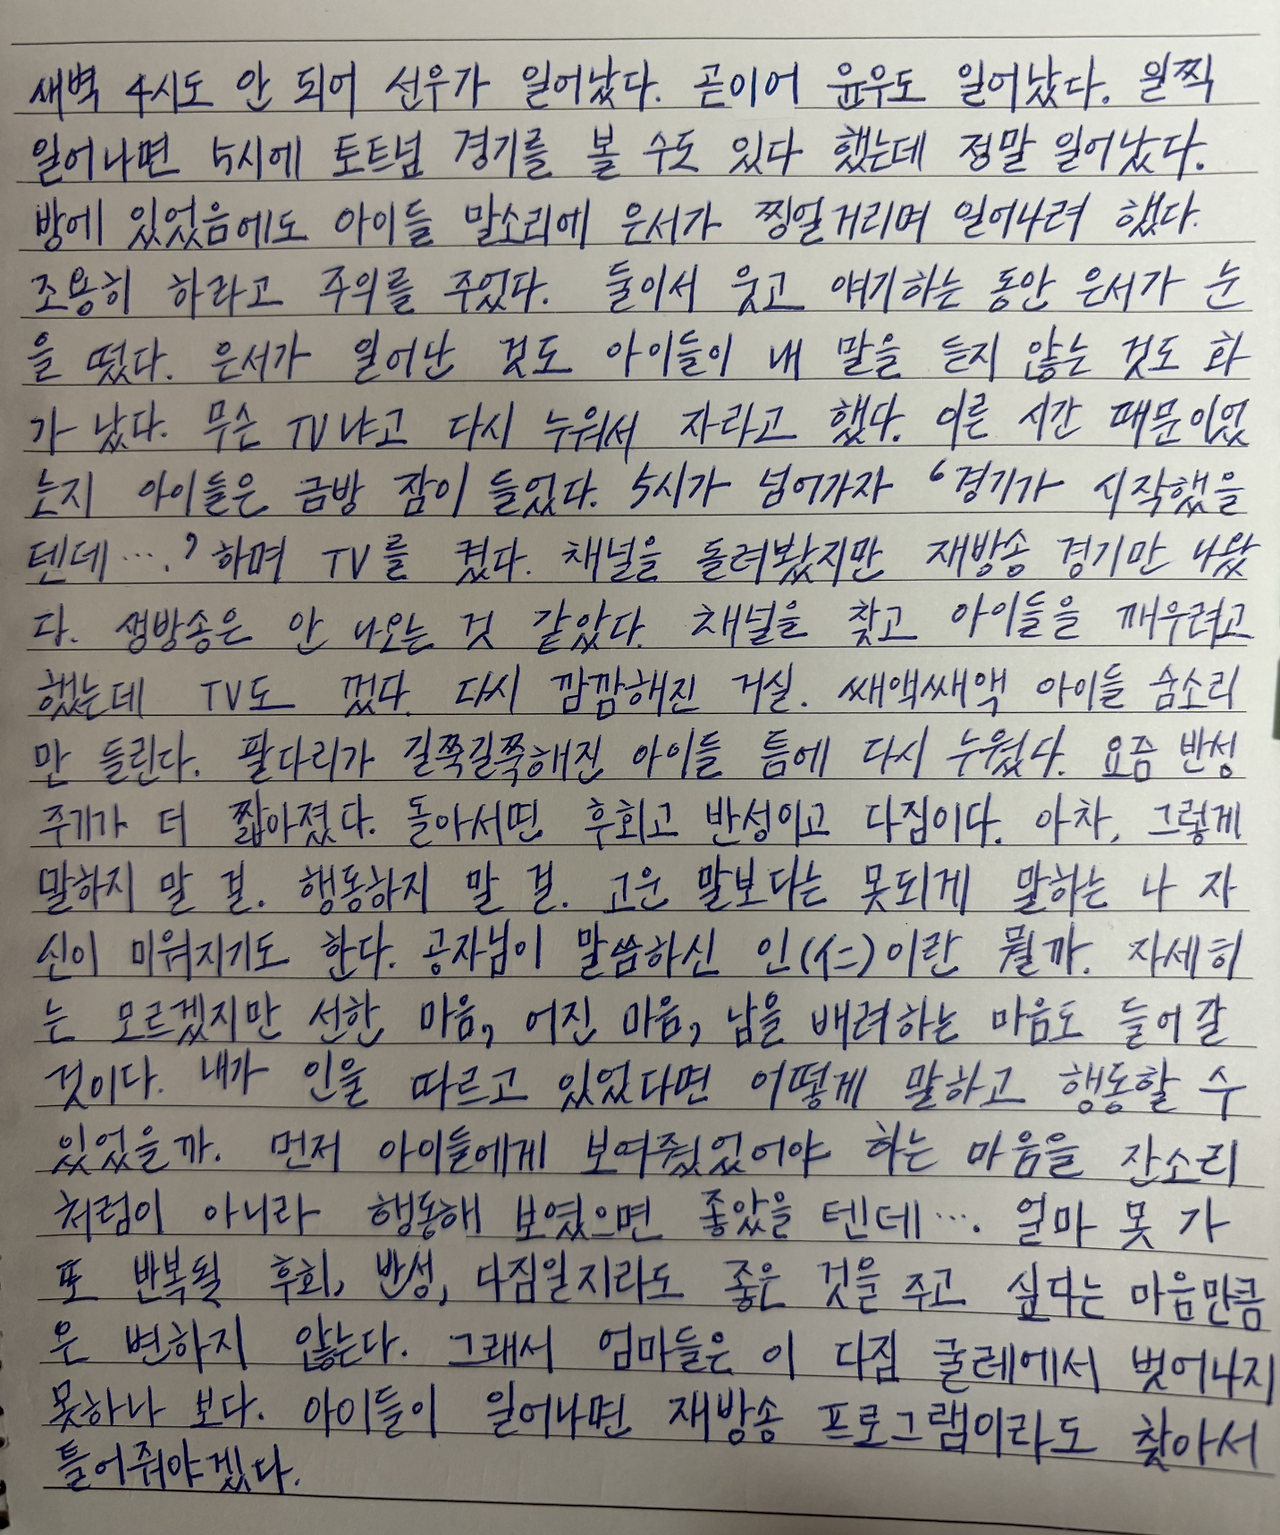 새벽 4시도 안 되어 선우가 일어났다. 곧이어 윤우도 일어났다. 일찍
일어나면 5시에 토트넘 경기를 볼 수도 있다 했는데 정말 일어났다.
방에 있었음에도 아이들 말소리에 은서가 찡얼거리며 일어나려 했다.
조용히 하라고 주의를 주었다. 둘이서 웃고 얘기하는 동안 은서가 눈
을 떴다. 은서가 일어난 것도 아이들이 내 말을 듣지 않는 것도 화
가 났다. 무슨 TV냐고 다시 누워서 자라고 했다. 이른 시간 때문이었
는지 아이들은 금방 잠이 들었다. 5시가 넘어가자 '경기가 시작했을
텐데….' 하며 TV를 켰다. 채널을 돌려봤지만 재방송 경기만 나왔
다. 생방송은 안 나오는 것 같았다. 채널을 찾고 아이들을 깨우려고
했는데 TV도 껐다. 다시 깜깜해진 거실. 쌔액쌔액 아이들 숨소리
만 들린다. 팔다리가 길쭉길쭉해진 아이들 틈에 다시 누웠다. 요즘 반성
주기가 더 짧아졌다. 돌아서면 후회고 반성이고 다짐이다. 아차, 그렇게
말하지 말 걸. 행동하지 말 걸. 고운 말보다는 못되게 말하는 나 자
신이 미워지기도 한다. 공자님이 말씀하신 인(仁)이란 뭘까. 자세히
는 모르겠지만 선한 마음, 어진 마음, 남을 배려하는 마음도 들어갈
것이다. 내가 인을 따르고 있었다면 어떻게 말하고 행동할 수
있었을까. 먼저 아이들에게 보여줬었어야 하는 마음을 잔소리
처럼이 아니라 행동해 보였으면 좋았을 텐데…. 얼마 못 가
또 반복될 후회, 반성, 다짐일지라도 좋은 것을 주고 싶다는 마음만큼
은 변하지 않는다. 그래서 엄마들은 이 다짐 굴레에서 벗어나지
못하나 보다. 아이들이 일어나면 재방송 프로그램이라도 찾아서
틀어줘야겠다.